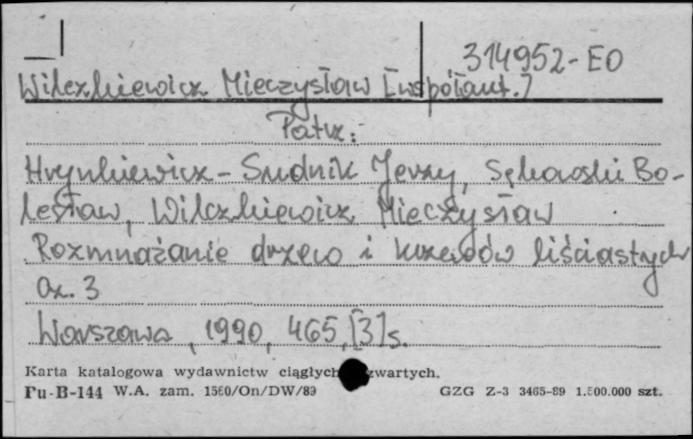 314952-EO
Wilczkiewicz Mieczysław [współaut.]
Patrz:
Hrynkiewicz-Sudnik Jerzy, Sękowski Bo-
lesław, Wilczkiewicz Mieczysław
Rozmnażanie drzew i krzewów liściastych
Cz. 3
Warszawa, 1990, 465, [3] s.
Karta katalogowa wydawnictw ciągłych zwartych.
Pu-B-144 W.A. zam. 1560/On/DW/89 GZG Z-3 3465-89 1.500.000 szt.